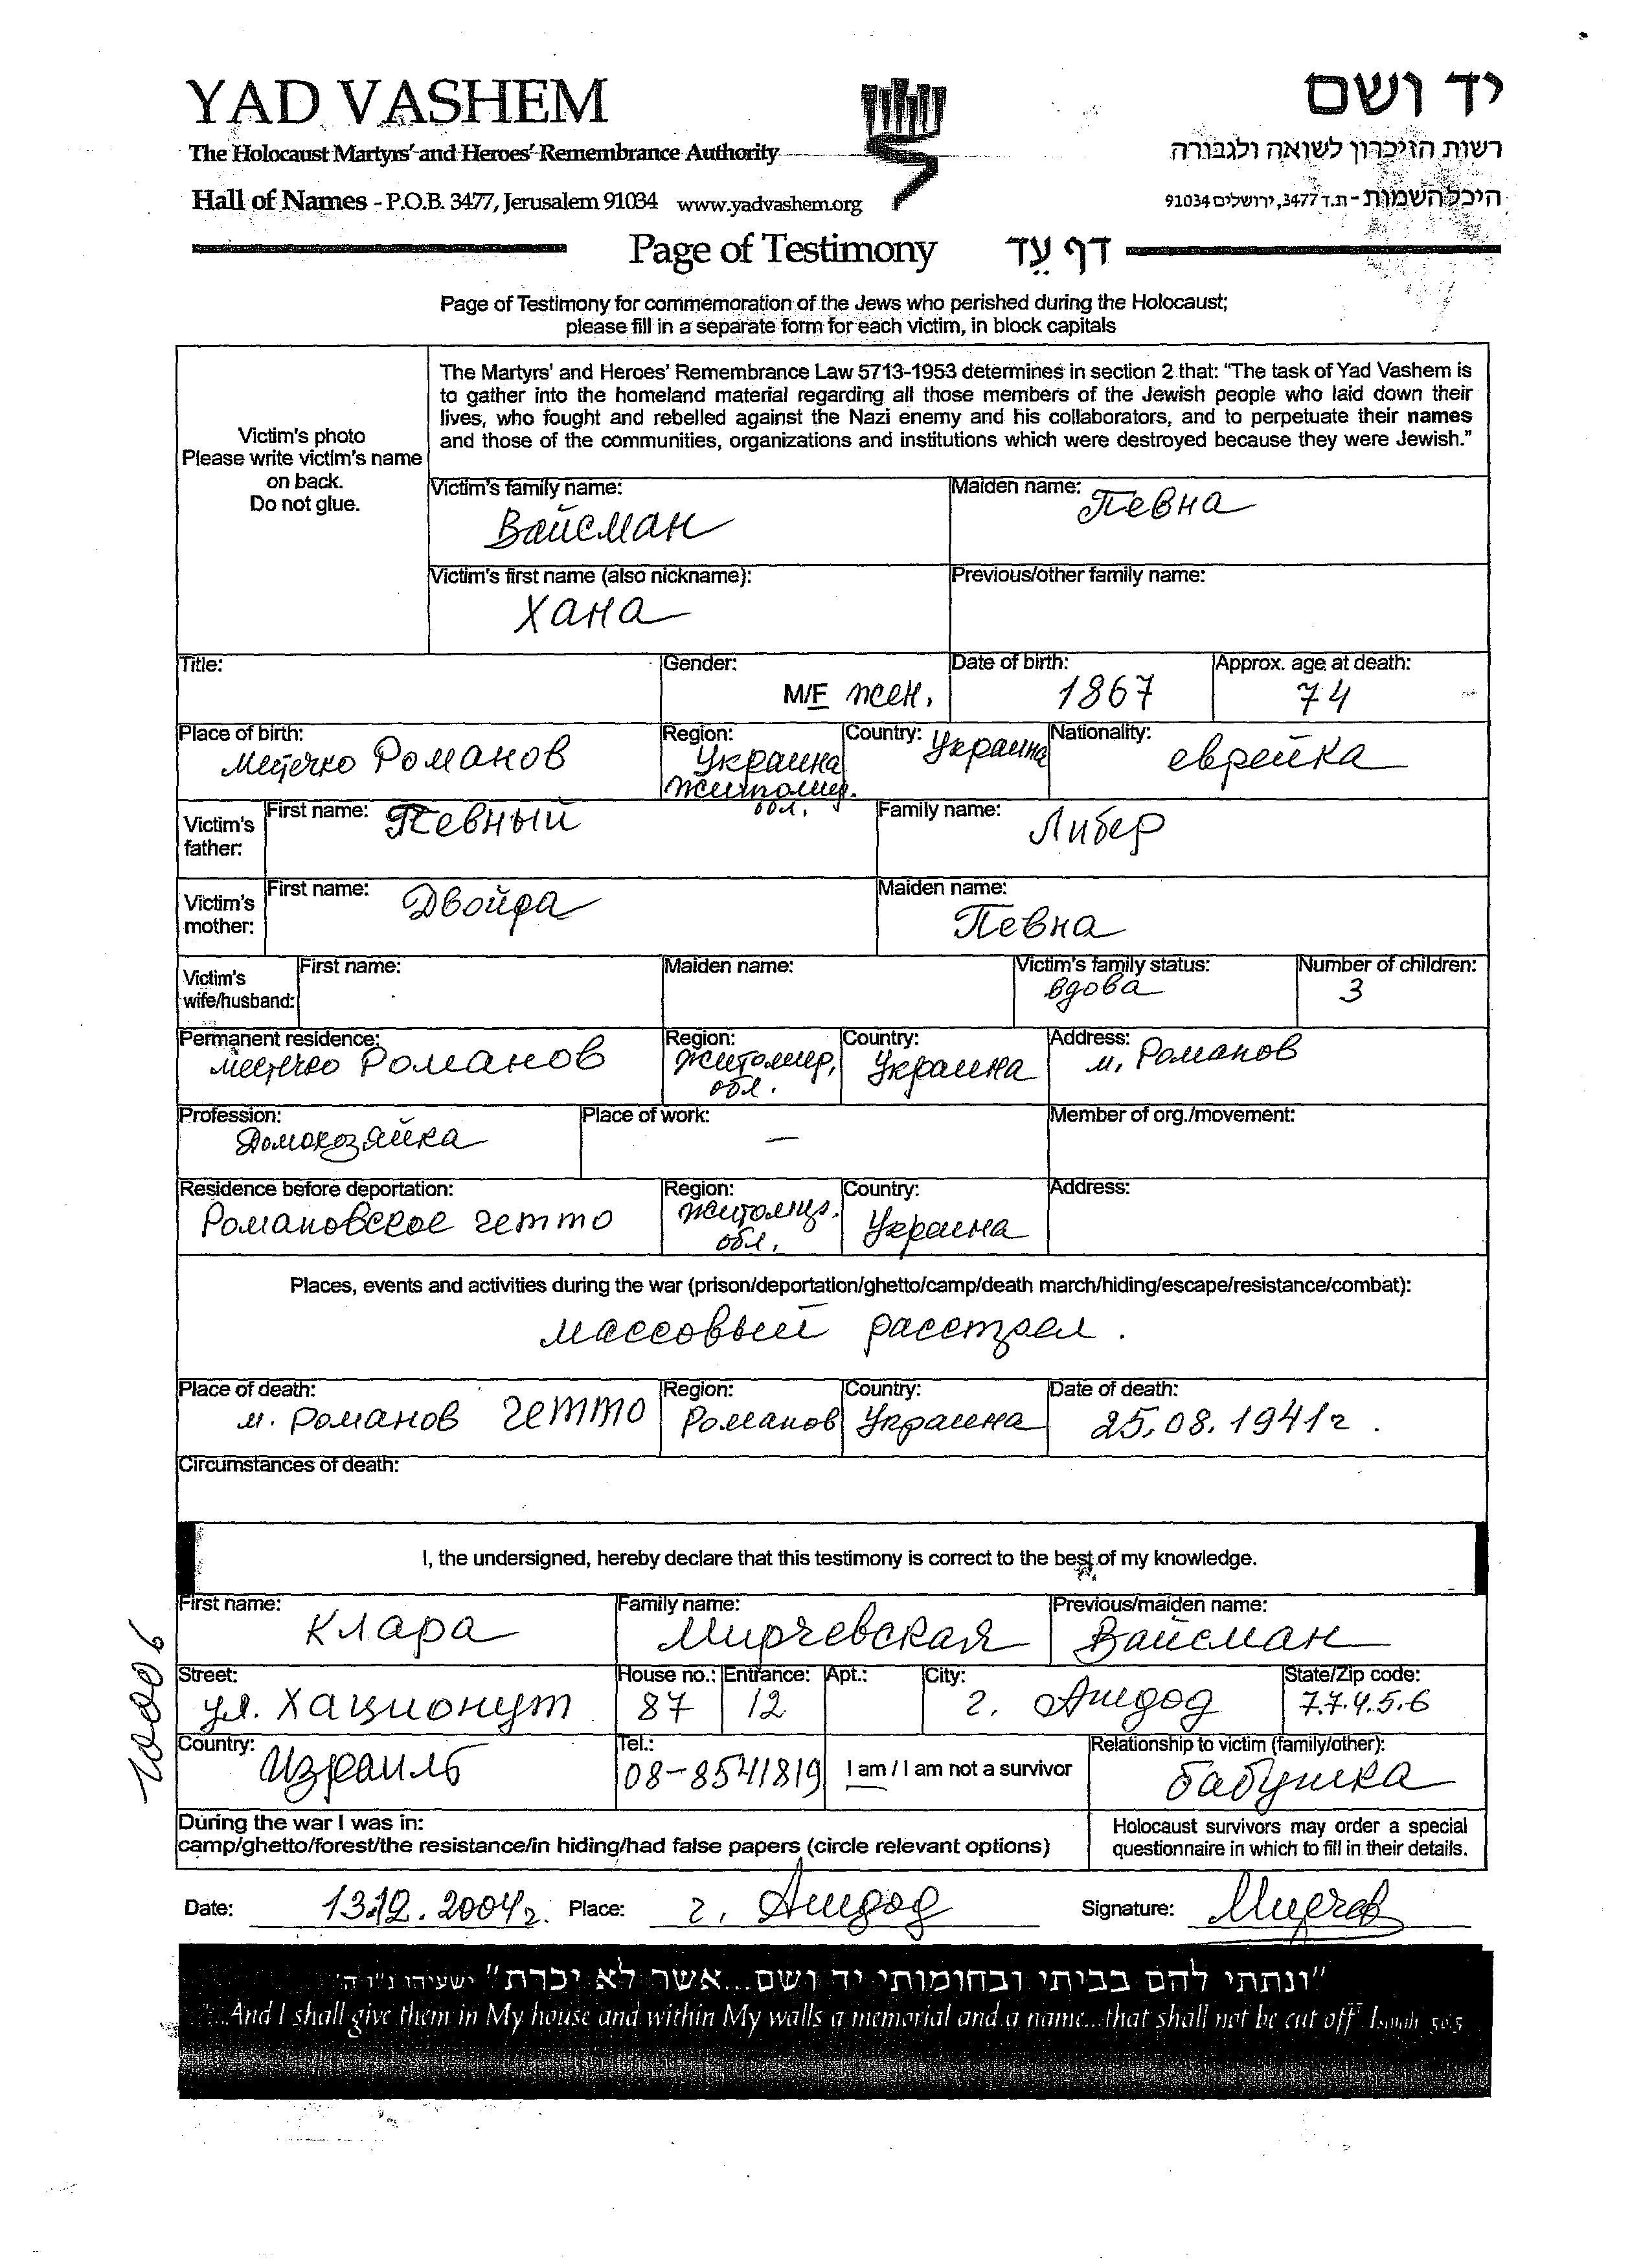 YAD VASHEM
The Holocaust Martyrs' and Heroes' Remembrance Authority
Hall of Names - P.O.B. 3477, Jerusalem 91034 www.yadvashem.org
יד ושם
רשות הזיכרון לשואה ולגבורה
היכל השמות - ת.ד 3477, ירושלים 91034
Page of Testimony דף עֵד
Page of Testimony for commemoration of the Jews who perished during the Holocaust;
please fill in a separate form for each victim, in block capitals
Victim's photo
Please write victim's name
on back.
Do not glue.
The Martyrs' and Heroes' Remembrance Law 5713-1953 determines in section 2 that: "The task of Yad Vashem is
to gather into the homeland material regarding all those members of the Jewish people who laid down their
lives, who fought and rebelled against the Nazi enemy and his collaborators, and to perpetuate their names
and those of the communities, organizations and institutions which were destroyed because they were Jewish."
Victim's family name: Maiden name:
Вайсман Певна
Victim's first name (also nickname): Previous/other family name:
Хана
Title: Gender: Date of birth: Approx. age at death:
M/F жен. 1867 74
Place of birth: Region: Country: Nationality:
местечко Романов Украина Украина еврейка
житомир.
обл.
Victim's father: First name: Певный Family name: Либер
Victim's mother: First name: Двойра Maiden name: Певна
Victim's wife/husband: First name: Maiden name: Victim's family status: Number of children:
вдова 3
Permanent residence: Region: Country: Address:
местечко Романов житомир. Украина м. Романов
обл.
Profession: Place of work: Member of org./movement:
Домохозяйка —
Residence before deportation: Region: Country: Address:
Романовское гетто житомир. Украина
обл.
Places, events and activities during the war (prison/deportation/ghetto/camp/death march/hiding/escape/resistance/combat):
массовый расстрел.
Place of death: Region: Country: Date of death:
м. Романов гетто Романов Украина 25.08.1941г.
Circumstances of death:
I, the undersigned, hereby declare that this testimony is correct to the best of my knowledge.
First name: Family name: Previous/maiden name:
Клара Мирчевская Вайсман
Street: House no.: Entrance: Apt.: City: State/Zip code:
ул. Хационут 87 12 г. Ашдод 7.7.4.5.6
Country: Tel.: Relationship to victim (family/other):
Израиль 08-8541819 I am / I am not a survivor бабушка
During the war I was in:
camp/ghetto/forest/the resistance/in hiding/had false papers (circle relevant options)
Holocaust survivors may order a special
questionnaire in which to fill in their details.
Date: 13.12.2004г. Place: г. Ашдод Signature: Мирчев
"ונתתי להם בביתי ובחומותי יד ושם...אשר לא יכרת" ישעיהו נ"ו ה'
"...And I shall give them in My house and within My walls a memorial and a name...that shall not be cut off" Isaiah 56:5